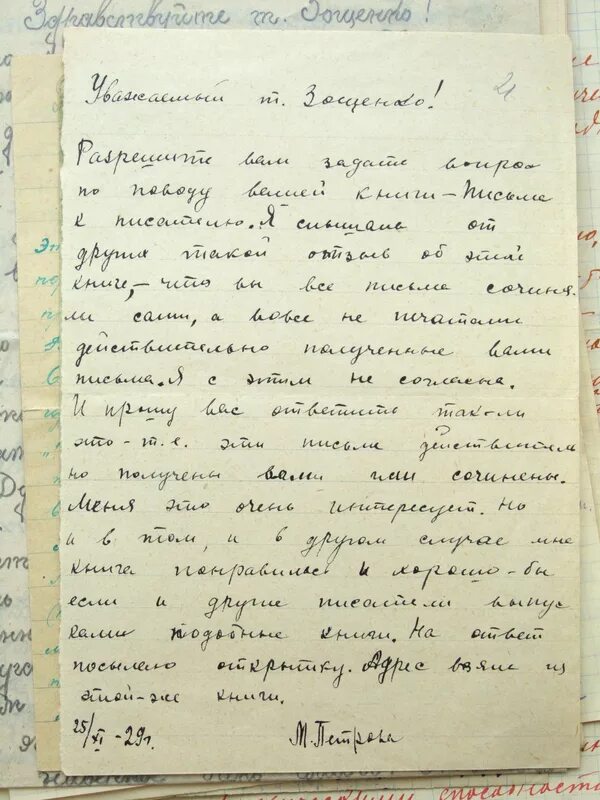 Здравствуйте т. Зощенко!
Уважаемый т. Зощенко!
Разрешите вам задать вопрос
по поводу вашей книги – Письма
к писателю. Я слышала от
других такой отзыв об этой
книге, – что вы все письма сочиня-
ли сами, а вовсе не печатали
действительно полученные вами
письма. Я с этим не согласна.
И прошу вас ответить так-ли
это – т.е. эти письма действитель
но получены вами или сочинены.
Меня это очень интересует. Но
и в том, и в другом случае мне
книга понравилась и хорошо-бы
если и другие писатели выпус
кали подобные книги. На ответ
посылаю открытку. Адрес взяла из
этой-же книги.
25/XI -29г. М. Петрова